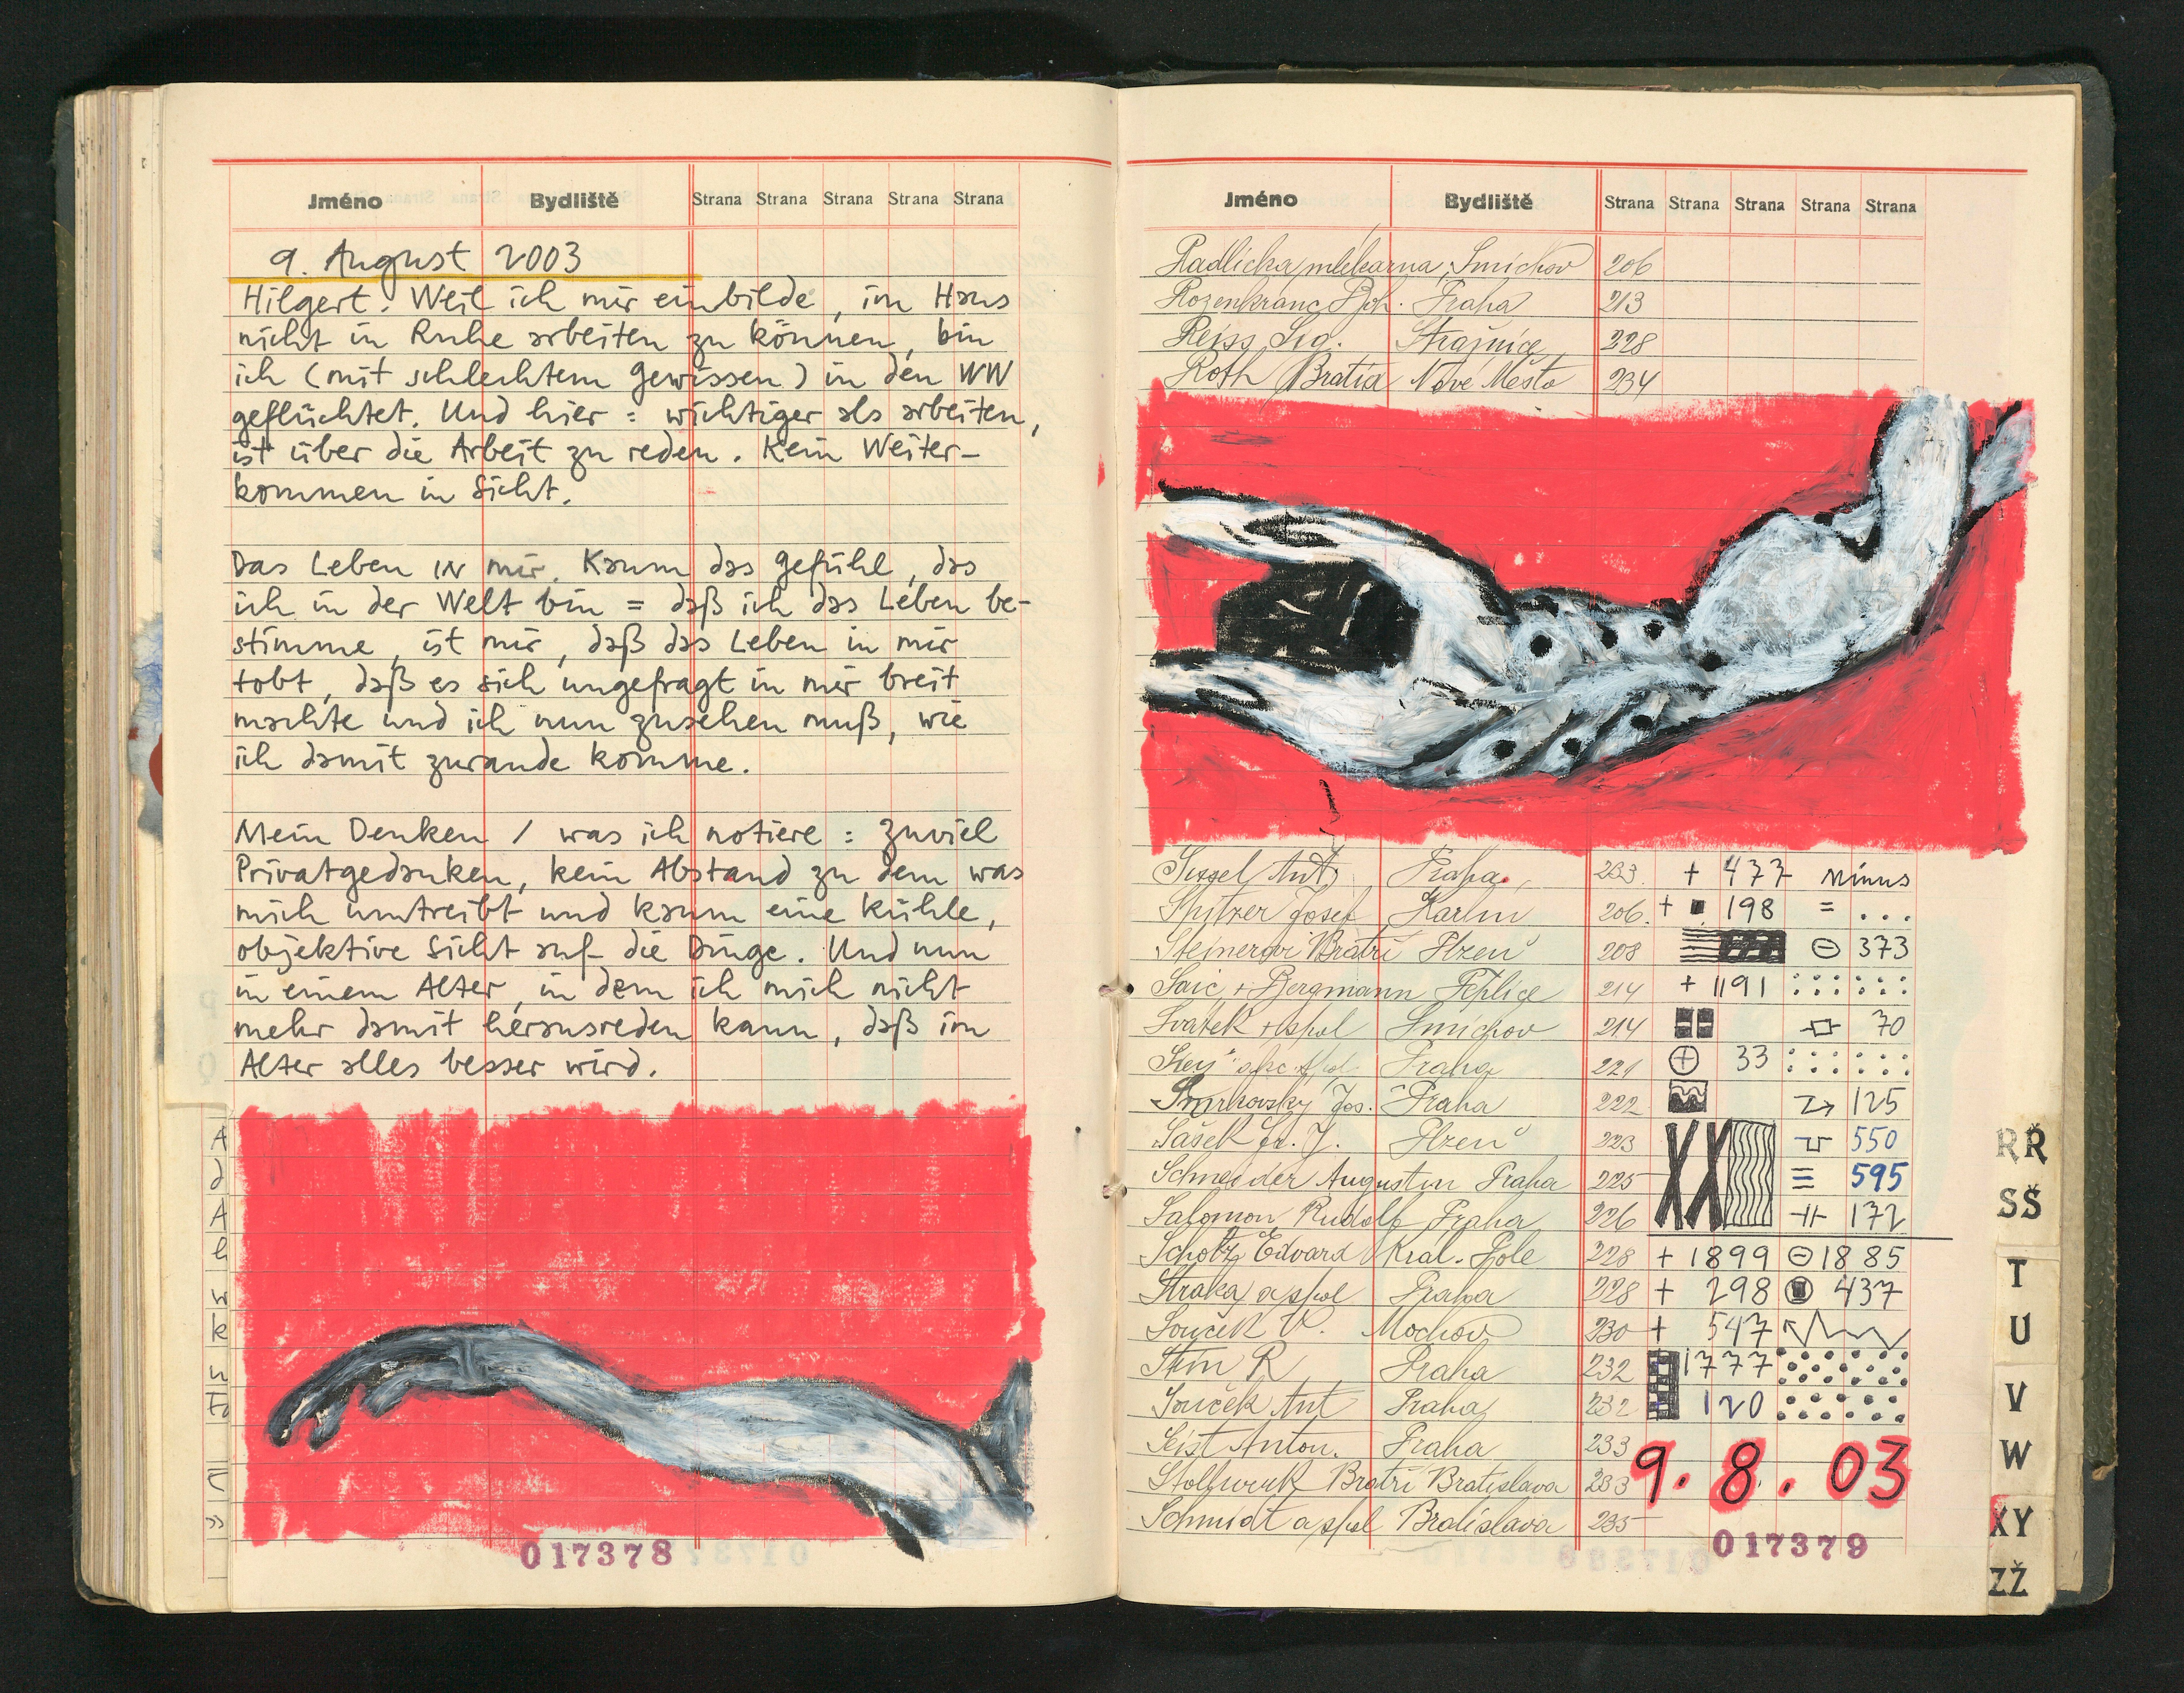 Jméno Bydliště Strana Strana Strana Strana Strana
9. August 2003
Hilgert. Weil ich mir einbilde, im Haus
nicht in Ruhe arbeiten zu können, bin
ich (mit schlechtem Gewissen) in den WW
geflüchtet. Und hier: wichtiger als arbeiten,
ist über die Arbeit zu reden. Kein Weiter-
kommen in Sicht.
Das Leben IN mir. Kaum das Gefühl, das
ich in der Welt bin = daß ich das Leben be-
stimme, ist mir, daß das Leben in mir
tobt, daß es sich ungefragt in mir breit
machte und ich nun zusehen muß, wie
ich damit zurande komme.
Mein Denken / was ich notiere: zuviel
Privatgedanken, kein Abstand zu dem was
mich umtreibt und kaum eine kühle,
objektive Sicht auf die Dinge. Und nun
in einem Alter, in dem ich mich nicht
mehr damit herausreden kann, daß im
Alter alles besser wird.
017378
Jméno Bydliště Strana Strana Strana Strana Strana
Radlická mlékarna, Smichov 206
Rozenkranc Praha 213
Reiss Sig. Strašnice 228
Roth Bratia Nové Mesto 234
Sissel Ant. Praha 233 + 477 minus
Spitzer Josef Karlin 206. + 198 = ...
Steinerovi Bratři Plzeň 208 ⊖ 373
Saic + Bergmann Teplice 214 + 1191
Svatek + spol Smichov 214 70
Praha 221 ⊕ 33
Smrkovsky Jos. Praha 222 125
Šašek Fr. J. Plzeň 223 550
Schneider Augustin Praha 225 595
Salomon Rudolf Praha 226 172
Scholz Edvard Kral. Pole 228 + 1899 ⊖ 1885
Straka a spol Praha 228 + 298 437
Souček V. Mochov 230 + 547
Stein R Praha 232 1777
Souček Ant Praha 232 120
Seist Anton. Praha 233
Stollwerk Bratři Bratislava 233
9. 8. 03
Schmidt a spol Bratislava 235
017379
RŘ
SŠ
T
U
V
W
XY
ZŽ